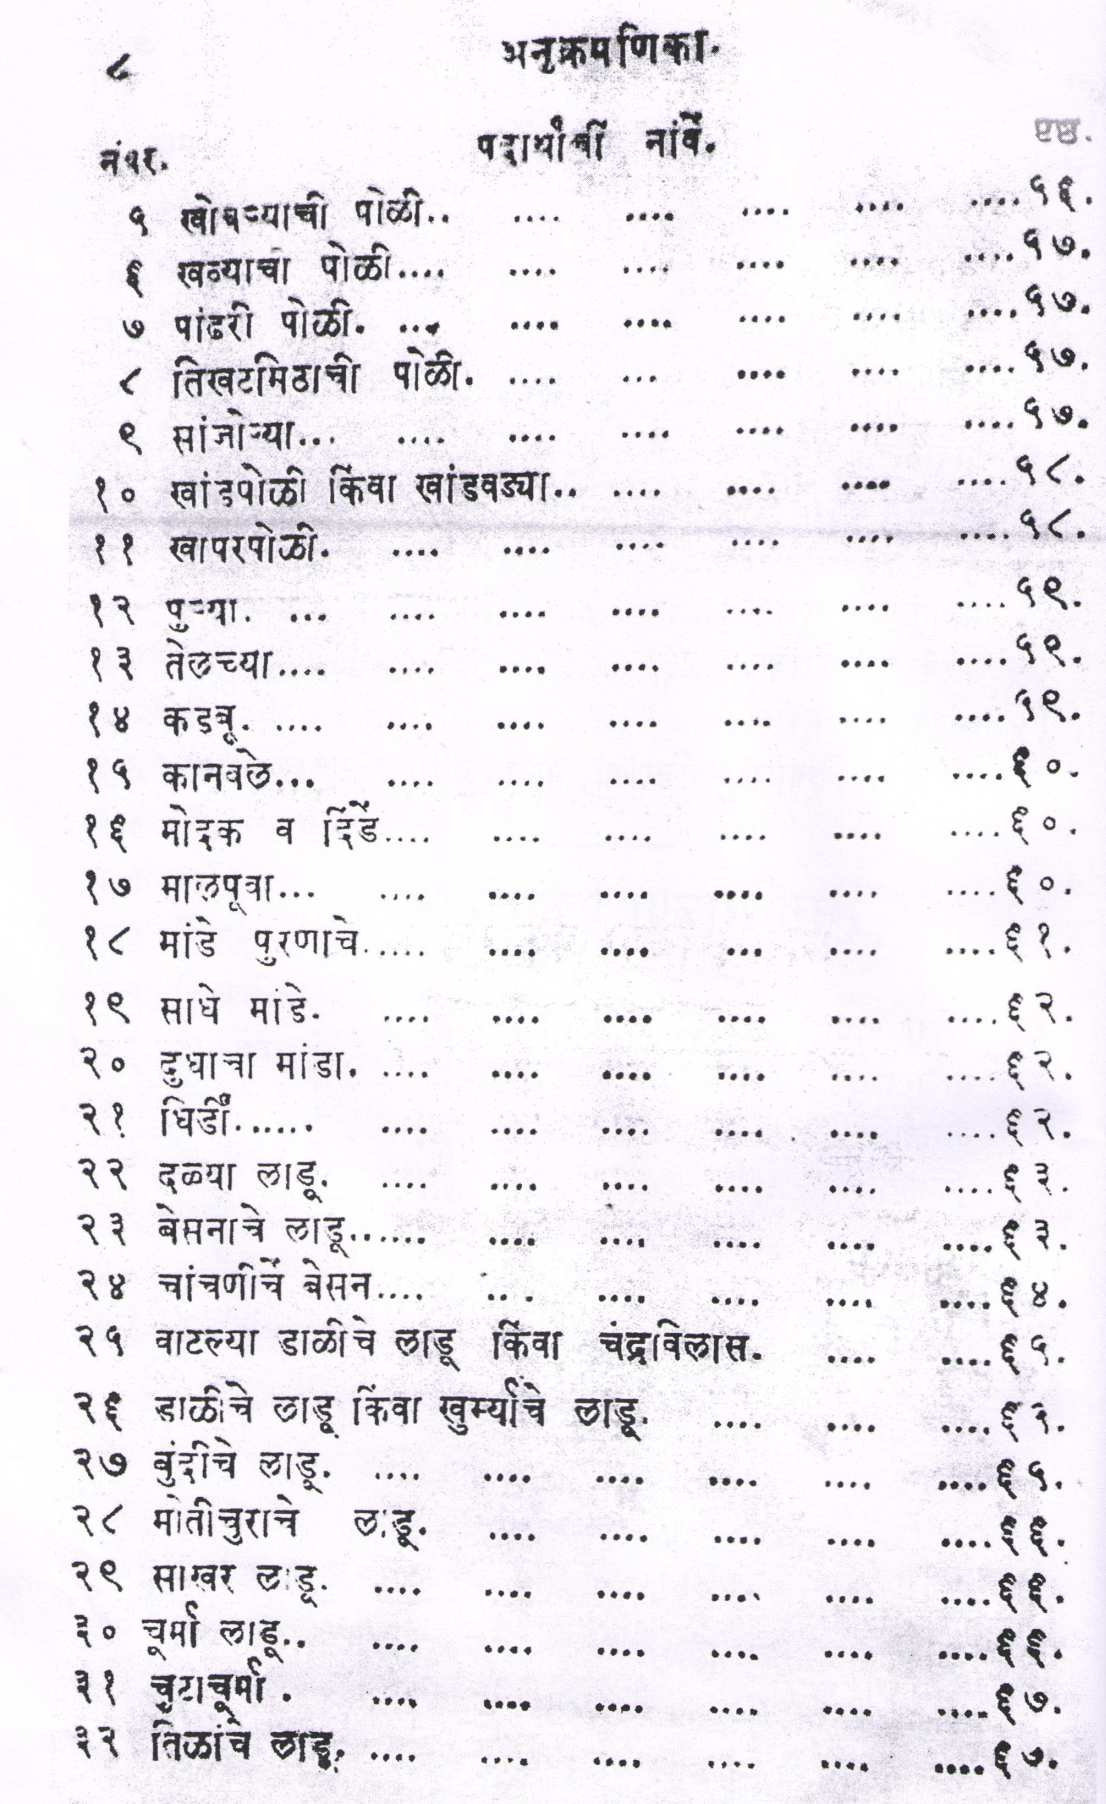 ८ अनुक्रमणिका.
नंबर. पदार्थांचीं नांवें. पृष्ठ.
५ खोबऱ्याची पोळी.. .... .... .... .... ....५६.
६ खव्याची पोळी.... .... .... .... .... ....५७.
७ पांढरी पोळी. .... .... .... .... .... ....५७.
८ तिखटमिठाची पोळी. .... ... .... .... ....५७.
९ सांजोऱ्या... .... .... .... .... .... ....५७.
१० खांडपोळी किंवा खांडवड्या.. .... .... .... ....५८.
११ खापरपोळी. .... .... .... .... .... ....५८.
१२ पुऱ्या. ... .... .... .... .... .... ....५९.
१३ तेलच्या.... .... .... .... .... .... ....५९.
१४ कडबू. .... .... .... .... .... .... ....५९.
१५ कानवले... .... .... .... .... .... ....६०.
१६ मोदक व दिंडें.... .... .... .... .... ....६०.
१७ मालपूवा... .... .... .... .... .... ....६०.
१८ मांडे पुरणाचे..... .... .... ... .... ....६१.
१९ साधे मांडे. .... .... .... .... .... ....६२.
२० दुधाचा मांडा. .... .... .... .... .... ....६२.
२१ धिर्डीं...... .... .... .... .... .... ....६२.
२२ दळ्या लाडू. .... .... .... .... .... ....६३.
२३ बेसनाचे लाडू....... .... .... .... .... ....६३.
२४ चांचणीचें बेसन.... .... .... .... .... ....६४.
२५ वाटल्या डाळीचे लाडू किंवा चंद्रविलास. .... ....६५.
२६ डाळीचे लाडू किंवा खुर्म्यांचे लाडू. .... .... ....६५.
२७ बुंदीचे लाडू. .... .... .... .... .... ....६५.
२८ मोतीचुराचे लाडू. .... .... .... .... ....६६.
२९ साखर लाडू. .... .... .... .... .... ....६६.
३० चूर्मा लाडू.. .... .... .... .... .... ....६६.
३१ चुटाचूर्मा . .... .... .... .... .... ....६७.
३२ तिळांचे लाडू. .... .... .... .... .... ....६७.